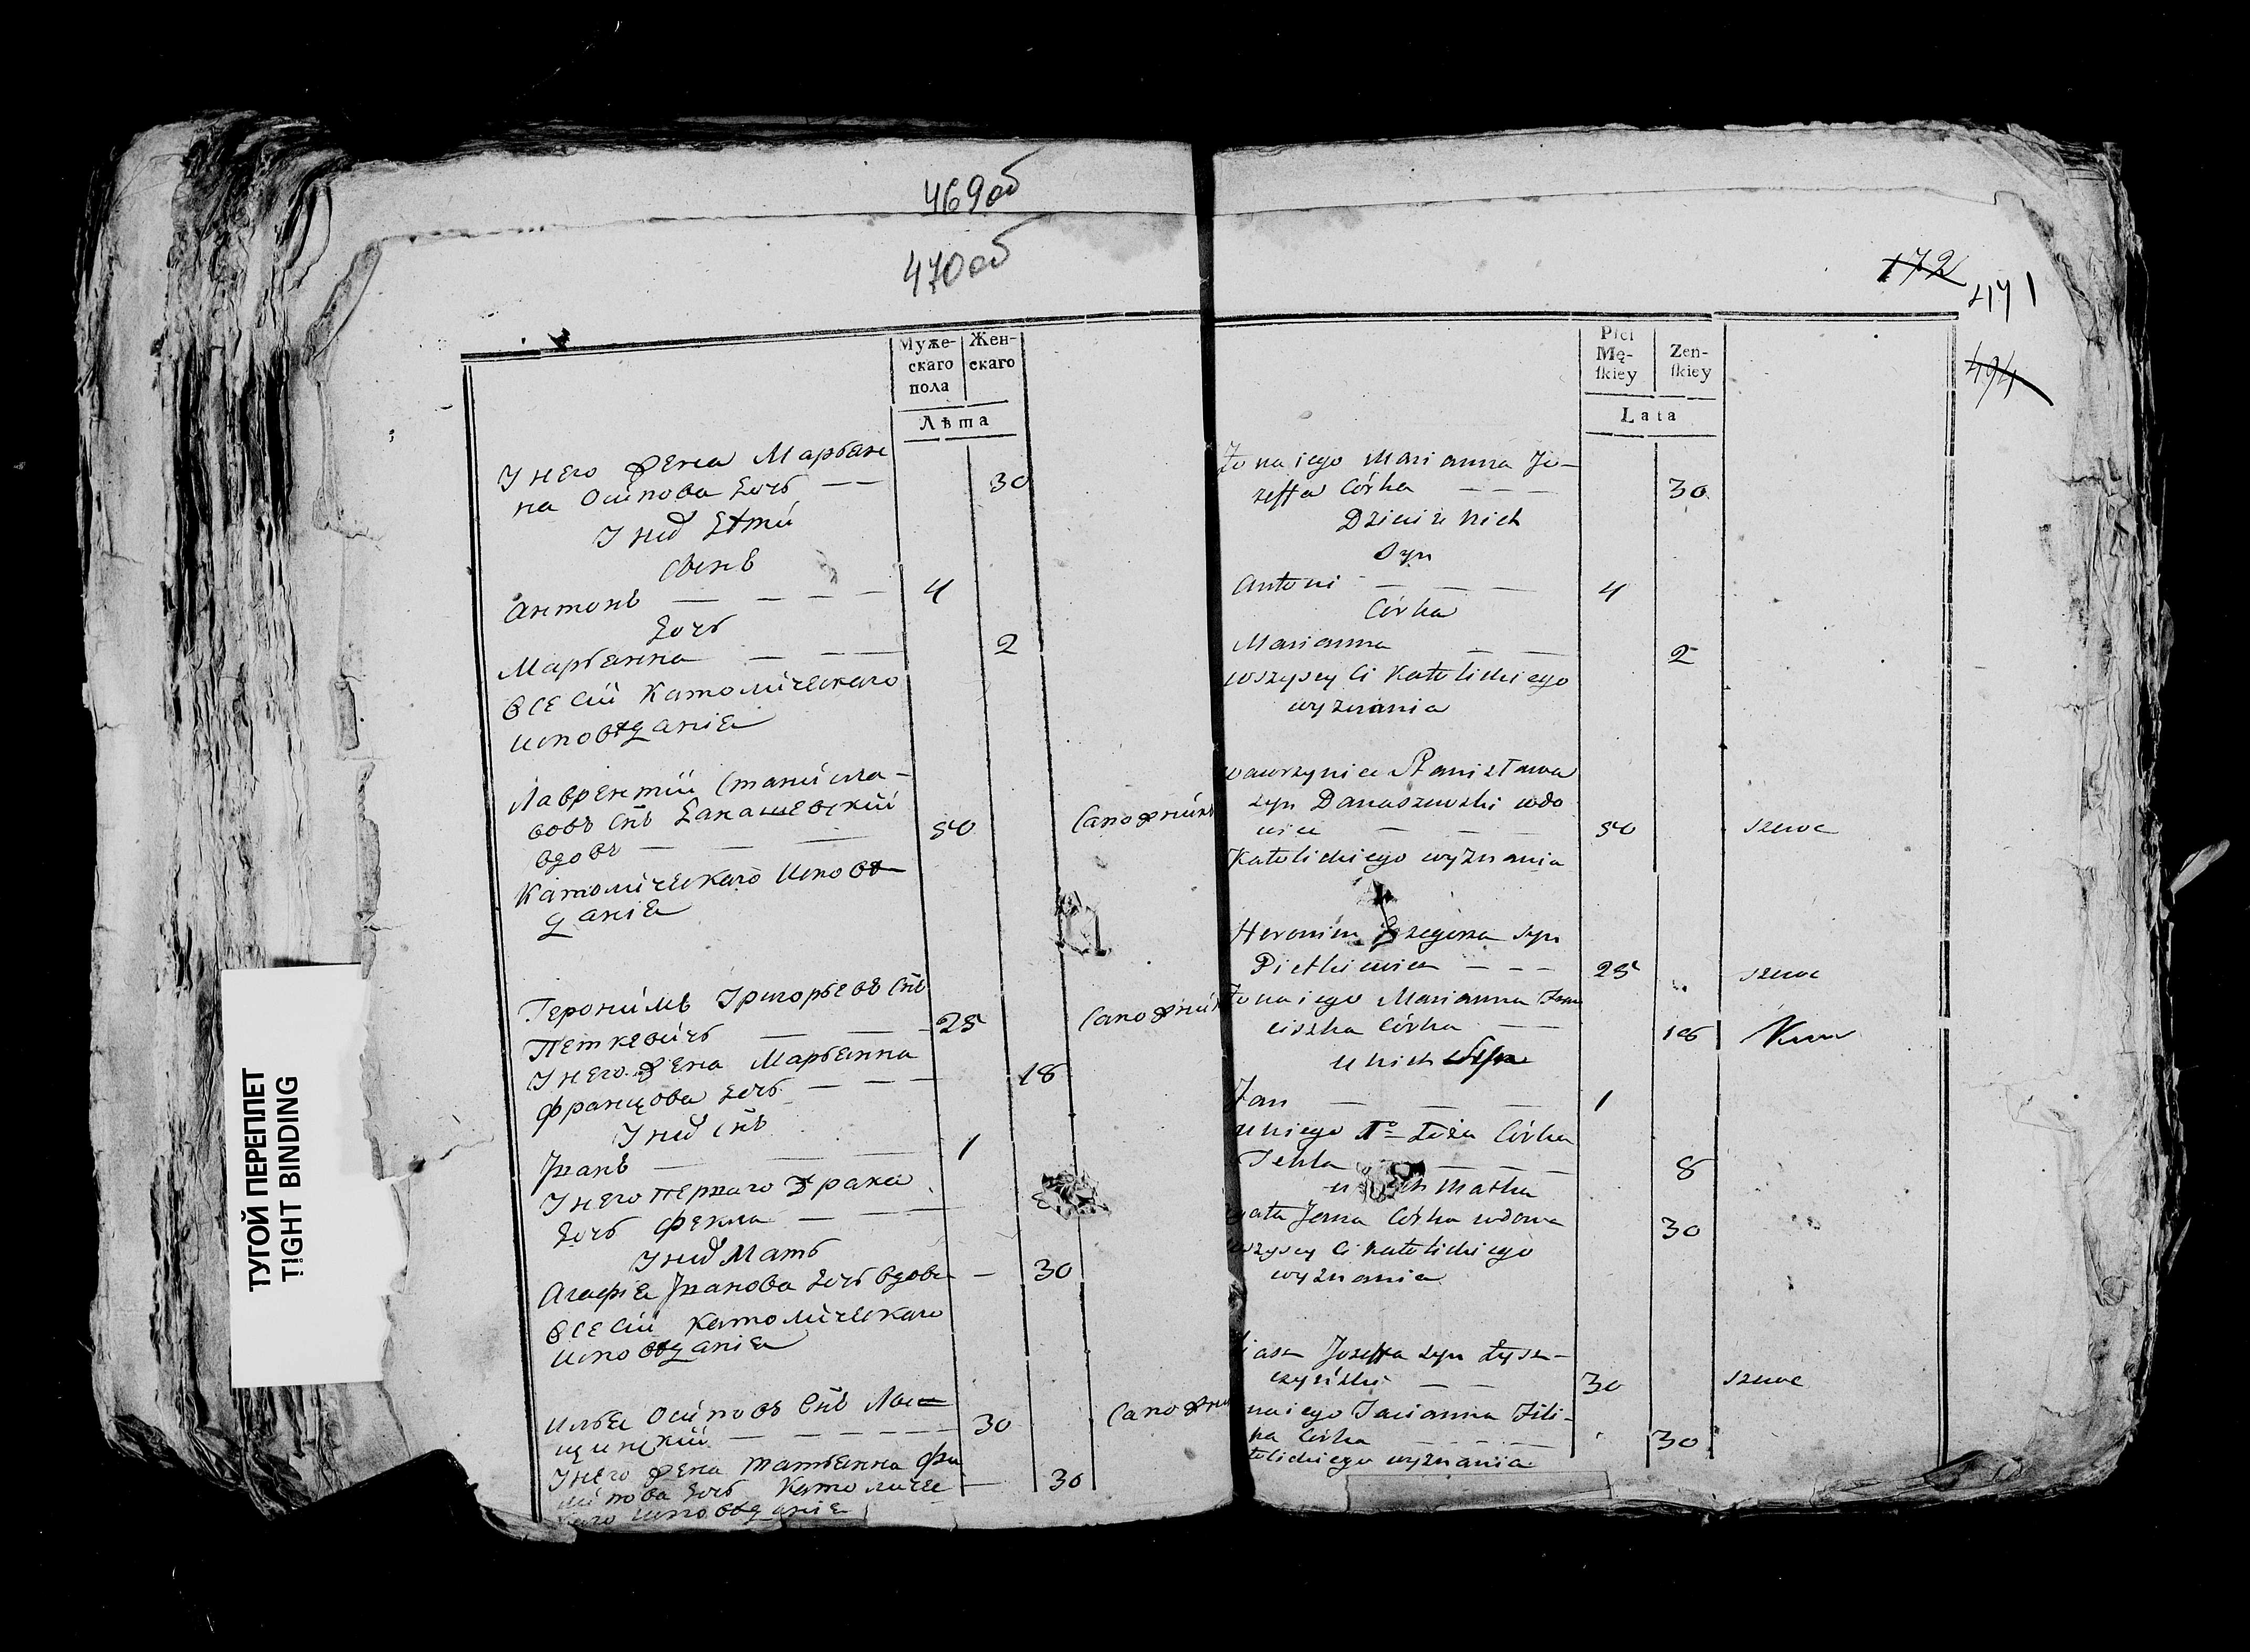 469об
470об
Муже-
скаго
пола
Жен-
скаго
Лѣта
У него жена Марьян
на Осипова дочь — —
30
У нихъ дѣти
сынъ
Антонъ — — — —
4
дочь
Марьянна — — —
2
все сіи Католическаго
исповѣданія
Лаврентій Станисла-
вовъ снъ Данашевскій
вдовъ — — —
50
Сапожникъ
Католическаго исповѣ
данія
Геронимъ Григорьевъ снъ
Петкевичъ — — —
25
Сапожник
У него жена Марьянна
Францова дочь — — —
18
У нихъ снъ
Иванъ — — —
1
У него первого брака
дочь Фекла — — —
У нихъ Мать
Агафія Иванова дочь вдова —
30
все сіи Католическаго
исповѣданія
Илья Осиповъ снъ
щинскій — — — — —
30
Сапожни
У него жена Татьянна Фи
липова дочь Католиче —
30
каго исповѣданія
ТУГОЙ ПЕРЕПЛЕТ
TIGHT BINDING
172
471
494
Płci
Mę-
ſkiey
Zeń-
ſkiey
Lata
Żona iego Marianna Jo-
zeffa Córka — — —
30
Dzieci z nich
Syn
Antoni — — —
4
Córka
Marianna — —
2
wszyscy Ci Katolickiego
wyznania
Wawrzyniec Stanisława
syn Danaszewski wdo
wiec — — —
50
szewc
Katolickiego wyznania
Heronim Grzegorza syn
Pietkiewicz — — —
25
szewc
Żona iego Marianna Fran
ciszka Córka — —
18
u nich Syn
Jan — — —
1
u niego 1º Łoża Córka
Tekla — — —
8
u nich Matka
gata Jana Córka wdowa
30
wszyscy Ci Katolickiego
wyznania
Jozeffa syn Łysz-
czyński — —
30
szewc
na iego Tacianna Fili-
pa Córka — — —
30
tolickiego wyznania